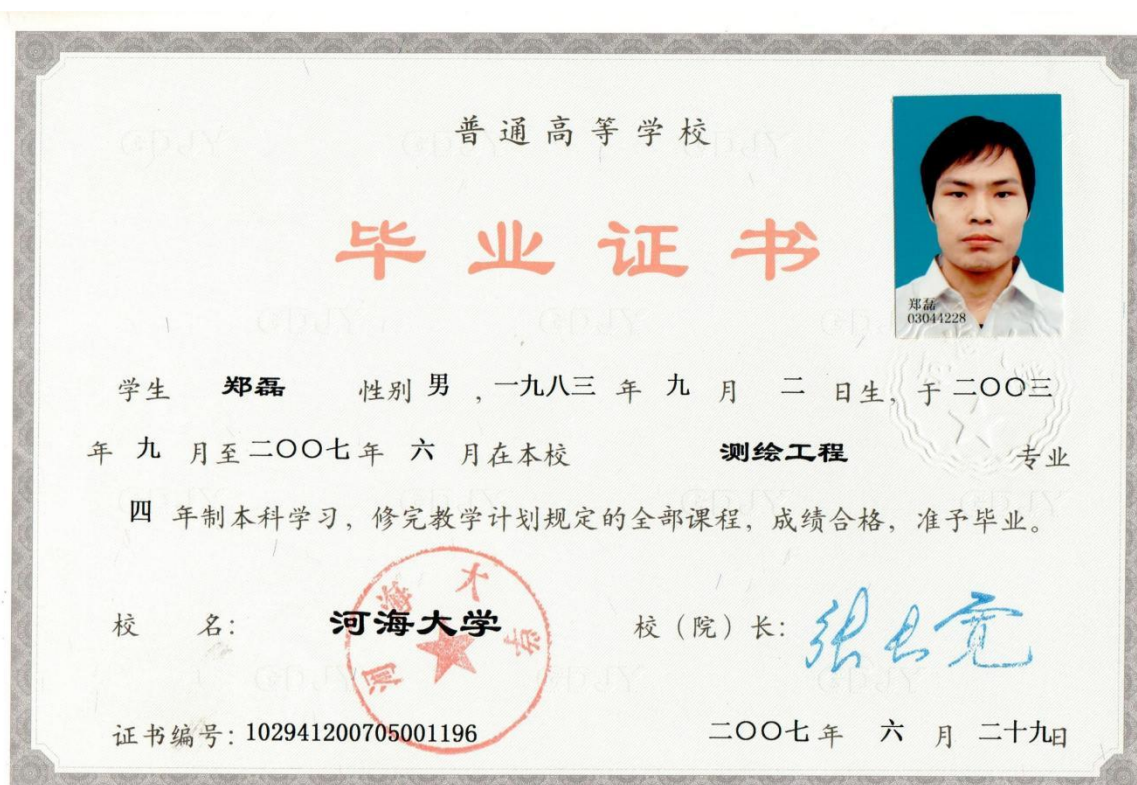 普通高等学校
毕业证书
郑磊
03044228
学生 郑磊 性别 男 ，一九八三 年 九 月 二 日生，于 二〇〇三
年 九 月至 二〇〇七 年 六 月在本校 测绘工程 专业
四 年制本科学习，修完教学计划规定的全部课程，成绩合格，准予毕业。
校 名： 河海大学 校（院）长： 张长宽
河海大学
证书编号：102941200705001196 二〇〇七 年 六 月 二十九日